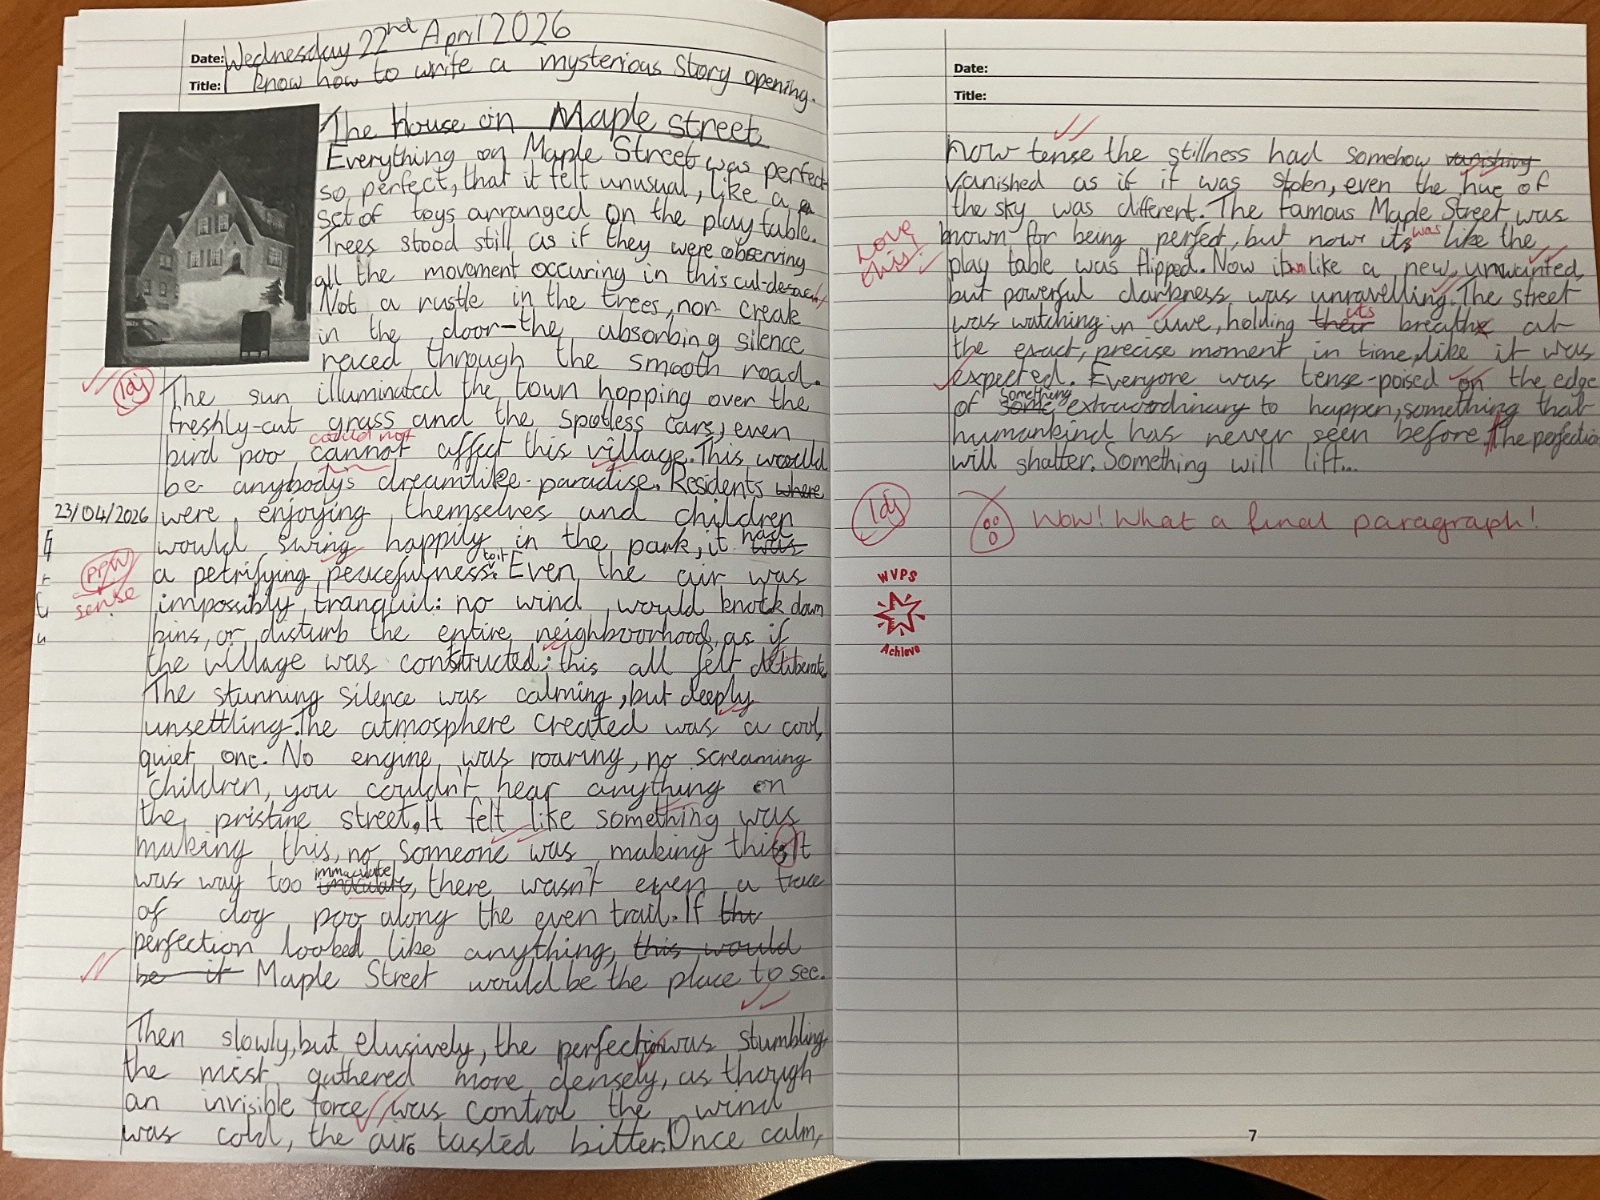 Date: Wednesday 22nd April 2026
Title: I know how to write a mysterious story opening.
The house on Maple street
Everything on Maple Street was perfect
so, perfect, that it felt unusual, like a
set of toys arranged on the play table.
Trees stood still as if they were observing
all the movement occuring in this cul-de-sac,
Not a rustle in the trees, nor creak
in the door-the absorbing silence
raced through the smooth road.
The sun illuminated the town hopping over the
freshly-cut grass and the spotless cars, even
could not
bird poo cannot affect this village. This would
be anybody's dreamlike-paradise. Residents where
23/04/2026 were enjoying themselves and children
would swing happily in the park, it had was
a petrifying peacefulness to it. Even the air was
sense
impossibly tranquil: no wind would knock down
bins, or disturb the entire neighbourhood, as if
the village was constructed; this all felt deliberate.
The stunning silence was calming, but deeply
unsettling. The atmosphere created was a cool,
quiet one. No engine was roaring, no screaming
children, you couldn't hear anything on
the pristine street. It felt like something was
making this, no, someone was making this. It
was way too immaculate, there wasn't even a trace
of dog poo along the even trail. If the
perfection looked like anything, this would
be it Maple Street would be the place to see.
Then slowly, but elusively, the perfection was stumbling,
the mist gathered more densely, as though
an invisible force was control the wind
was cold, the air tasted bitter. Once calm,
6
Date:
Title:
now tense the stillness had somehow vanishing
vanished as if it was stolen, even the hue of
the sky was different. The famous Maple Street was
known for being perfect, but now its was like the
Love this!
play table was flipped. Now its like a new, unwanted,
but powerful darkness was unravelling. The street
was watching in awe, holding their its breath at
the exact, precise moment in time, like it was
expected. Everyone was tense-poised on the edge
of some something extraordinary to happen, something that
humankind has never seen before. The perfection
will shatter. Something will lift...
Wow! What a final paragraph!
WVPS
Achieve
7